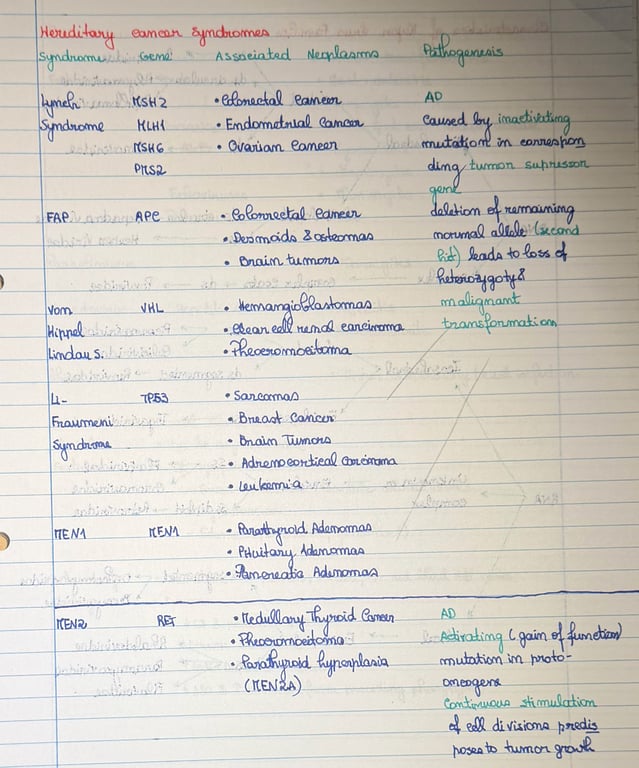 Hereditary cancer syndromes
Syndrome Gene Associated Neoplasms Pathogenesis
Lynch MSH2 • Colorectal Cancer AD
Syndrome MLH1 • Endometrial Cancer caused by inactivating
MSH6 • Ovarian Cancer mutation in correspon
PMS2 ding tumor supressor
gene
FAP APC • Colorrectal Cancer deletion of remaining
• Desmoids & osteomas normal allele (second
• Brain tumors hit) leads to loss of
heterozygoty &
von VHL • Hemangioblastomas malignant
Hippel • Clear cell renal carcinoma transformation
Lindau S. • Pheocromocitoma
Li- TP53 • Sarcomas
Fraumeni • Breast Cancer
Syndrome • Brain Tumors
• Adrenocortical Carcinoma
• Leukemia
MEN1 MEN1 • Parathyroid Adenomas
• Pituitary Adenomas
• Pancreatic Adenomas
MEN2 RET • Medullary Thyroid Cancer AD
• Pheocromocitoma Activating (gain of function)
• Parathyroid hyperplasia mutation in proto-
(MEN2A) oncogene
Continuous stimulation
of cell divisions predis
poses to tumor growth